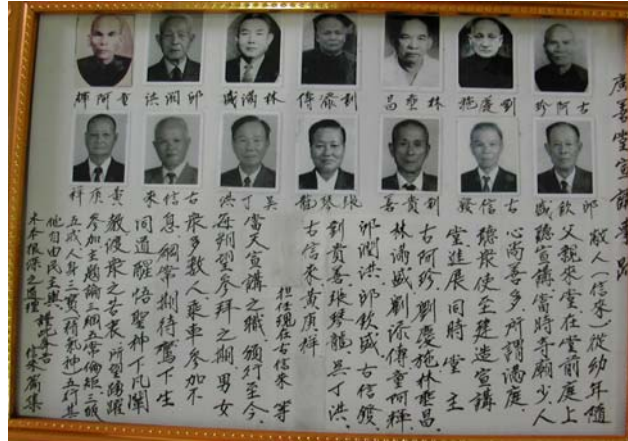 廣善堂宣講
古阿珍
劉慶施
林垂昌
劉添傳
林滿盛
邱潤洪
童阿輝
邱欽盛
古信發
劉貴善
張琴龍
吳丁洪
古信來
黃庚祥
敝人(信來)從幼年隨
父親來堂在堂前庭上
聽宣講當時寺廟少人
心尚善多所謂滿庭
聽眾使至建造宣講
堂進展同時堂主
古阿珍劉慶施林垂昌
林滿盛劉添傳童阿輝
邱潤洪邱欽盛古信發
劉貴善張琴龍吳丁洪
古信來黃庚祥
担任現在古信來等
當天宣講之職頒行至今
每朔望參拜之期男女
眾多數人乘車參加不
息綱常期待鸞下生
同道醒悟聖神下凡闡
教渡眾之苦衷所望踴躍
參加主題論三綱五常倫矩三皈
五戒人身三寶(精氣神)五行其
他自由民主樂 謹記毋忘
木本根深之道理 信來 集